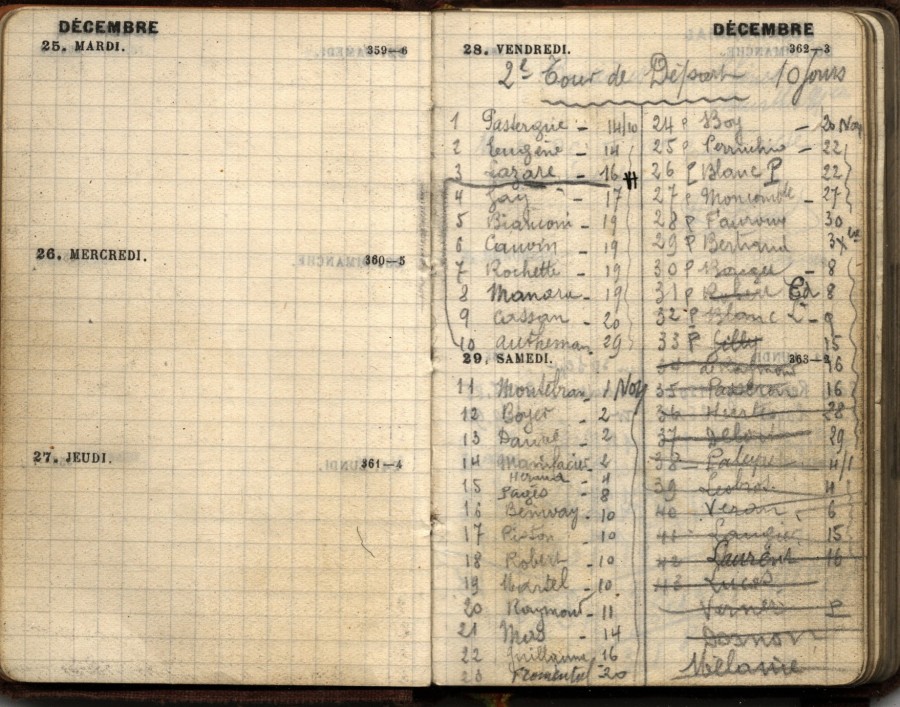 DÉCEMBRE
25. MARDI. 359—6
26. MERCREDI. 360—5
27. JEUDI. 361—4
DÉCEMBRE
28. VENDREDI. 362—3
2e Tour de Départ 10 Jours
1 Pastergue - 14/10
2 Eugène - 14
3 Lazare - 16
4 Gay - 17
5 Bianconi - 19
6 Cauvin - 19
7 Rochette - 19
8 Manara - 19
9 Cassan - 20
10 Autheman 29
29. SAMEDI. 363—2
11 Montebran 1 Nov
12 Boyer - 2
13 - 2
14 2
15 - 4
Pagès - 8
16 10
17 Piston - 10
18 Robert - 10
19 Martel - 10
20 Raymond - 11
21 - 14
22 Guillaume 16
23 Fromental 20
24 P Boy - 20 Nov
25 P Perruchio - 22
26 P Blanc P 22
27 P - 27
28 P Fauroux 30
29 P Bertrand
30 P Rouger - 8
31 P Robert Ed 8
32 P Blanc L -
33 P Gilly 15
34 16
35 16
36 28
37 29
38 4/1
39 4
40 Veran 6
41 Laugier 15
42 Laurent 16
43 Lucas
Vernet P
Mélanie